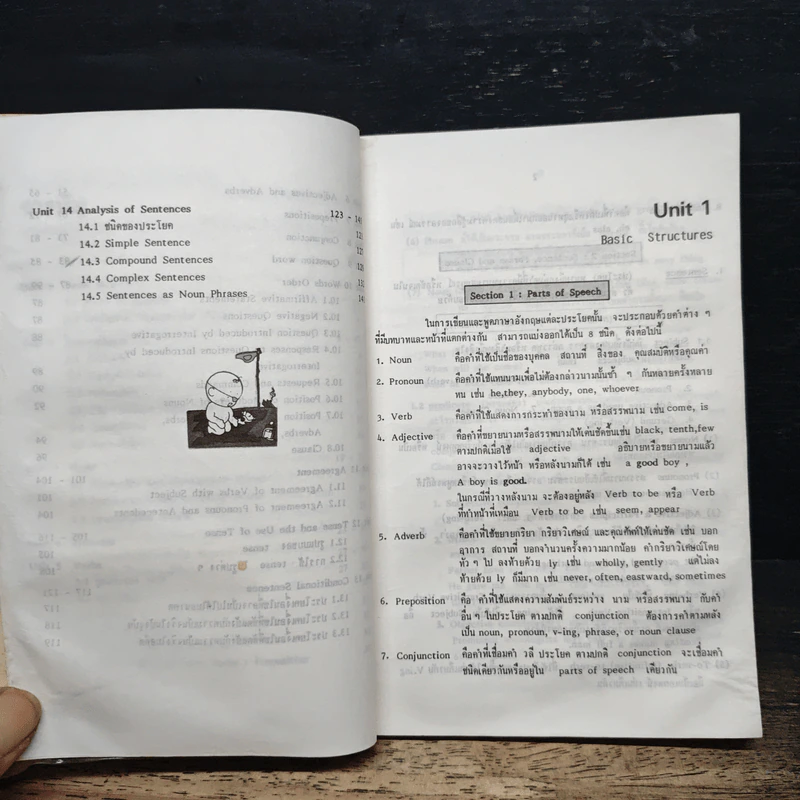 Unit 14 Analysis of Sentences 123 -
14.1 ชนิดของประโยค
14.2 Simple Sentence
14.3 Compound Sentences
14.4 Complex Sentences
14.5 Sentences as Noun Phrases
Unit 1
Basic Structures
Section 1 : Parts of Speech
ในการเขียนและพูดภาษาอังกฤษแต่ละประโยคนั้น จะประกอบด้วยคำต่าง ๆ
ที่มีบทบาทและหน้าที่แตกต่างกัน สามารถแบ่งออกได้เป็น 8 ชนิด ดังต่อไปนี้
1. Noun คือคำที่ใช้เป็นชื่อของบุคคล สถานที่ สิ่งของ คุณสมบัติหรือคุณค่า
2. Pronoun คือคำที่ใช้แทนนามเพื่อไม่ต้องกล่าวนามนั้นซ้ำ ๆ กันหลายครั้งหลาย
หน เช่น he,they, anybody, one, whoever
3. Verb คือคำที่ใช้แสดงการกระทำของนาม หรือสรรพนาม เช่น come, is
4. Adjective คือคำที่ขยายนามหรือสรรพนามให้เด่นชัดขึ้นเช่น black, tenth,few
ตามปกติเมื่อใช้ adjective อธิบายหรือขยายนามแล้ว
อาจจะวางไว้หน้า หรือหลังนามก็ได้ เช่น a good boy ,
A boy is good.
ในกรณีที่วางหลังนาม จะต้องอยู่หลัง Verb to be หรือ Verb
ที่ทำหน้าที่เหมือน Verb to be เช่น seem, appear
5. Adverb คือคำที่ใช้ขยายกริยา กริยาวิเศษณ์ และคุณศัพท์ให้เด่นชัด เช่น บอก
อาการ สถานที่ บอกจำนวนครั้งความมากน้อย คำกริยาวิเศษณ์โดย
ทั่ว ๆ ไป ลงท้ายด้วย ly เช่น wholly, gently แต่ไม่ลง
ท้ายด้วย ly ก็มีมาก เช่น never, often, eastward, sometimes
6. Preposition คือ คำที่ใช้แสดงความสัมพันธ์ระหว่าง นาม หรือสรรพนาม กับคำ
อื่น ๆ ในประโยค ตามปกติ conjunction ต้องการคำตามหลัง
เป็น noun, pronoun, v-ing, phrase, or noun clause
7. Conjunction คือคำที่เชื่อมคำ วลี ประโยค ตามปกติ conjunction จะเชื่อมคำ
ชนิดเดียวกันหรืออยู่ใน parts of speech เดียวกัน